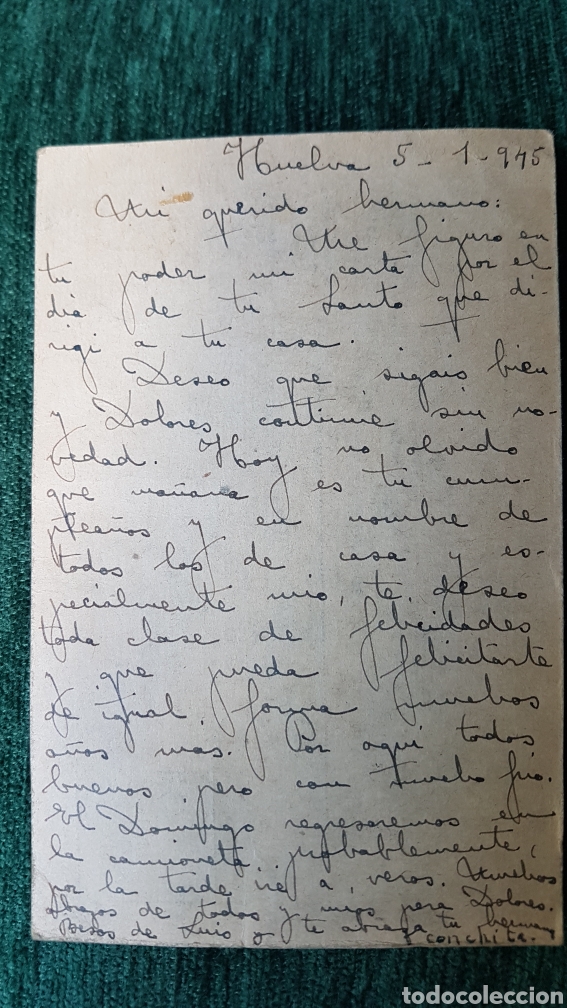 Huelva 5-1-945
Mi querido hermano:
Me figuro en
tu poder mi carta por el
dia de tu Santo que di-
rigi a tu casa.
Deseo que sigais bien
y Dolores continue sin no-
vedad. Hoy no olvido
que mañana es tu cum-
pleaños y en nombre de
todos los de casa y es-
pecialmente mio, te deseo
toda clase de felicidades
y que pueda felicitarte
de igual forma muchos
años mas. Por aqui todos
buenos pero con mucho frio.
El Domingo regresaremos en
la camioneta probablemente,
por la tarde iré a veros. Muchos
abrazos de todos y mios para Dolores.
Besos de Luis y te abraza tu herma
Conchita.
todocoleccion